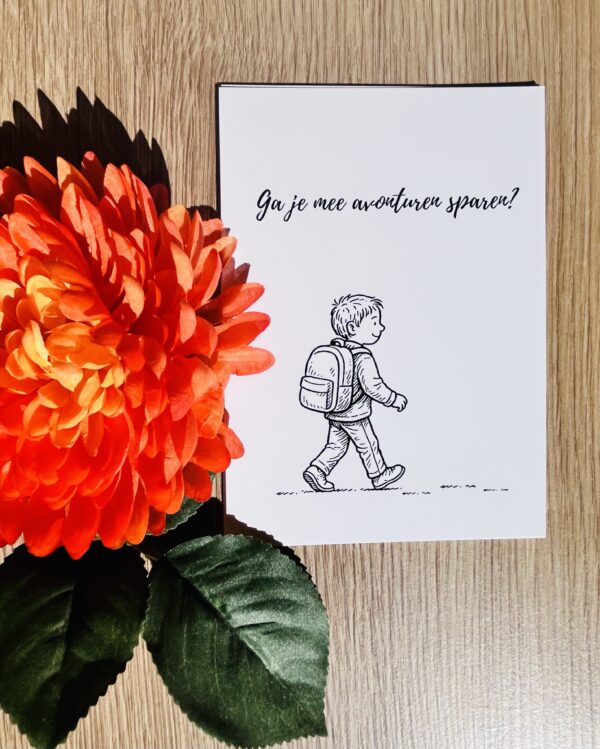 Ga je mee avonturen sparen?